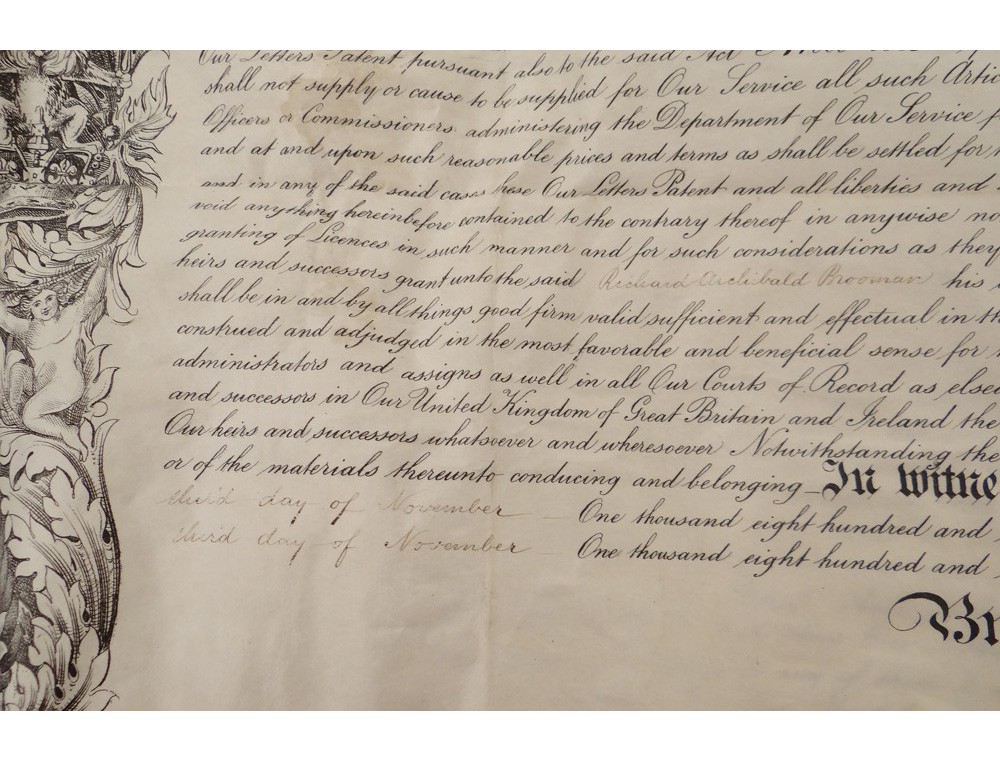 Our Letters Patent pursuant also to the said Act
shall not supply or cause to be supplied for Our Service all such Artic
Officers or Commissioners administering the Department of Our Service f
and at and upon such reasonable prices and terms as shall be settled for
and in any of the said cases hese Our Letters Patent and all liberties and
void anything hereinbefore contained to the contrary thereof in anywise no
granting of Licences in such manner and for such considerations as they
heirs and successors grant unto the said Richard Archibald Brooman his
shall be in and by all things good firm valid sufficient and effectual in th
construed and adjudged in the most favorable and beneficial sense for
administrators and assigns as well in all Our Courts of Record as else
and successors in Our United Kingdom of Great Britain and Ireland the
Our heirs and successors whatsoever and wheresoever Notwithstanding the
or of the materials thereunto conducing and belonging – In witne
third day of November — One thousand eight hundred and
third day of November — One thousand eight hundred and